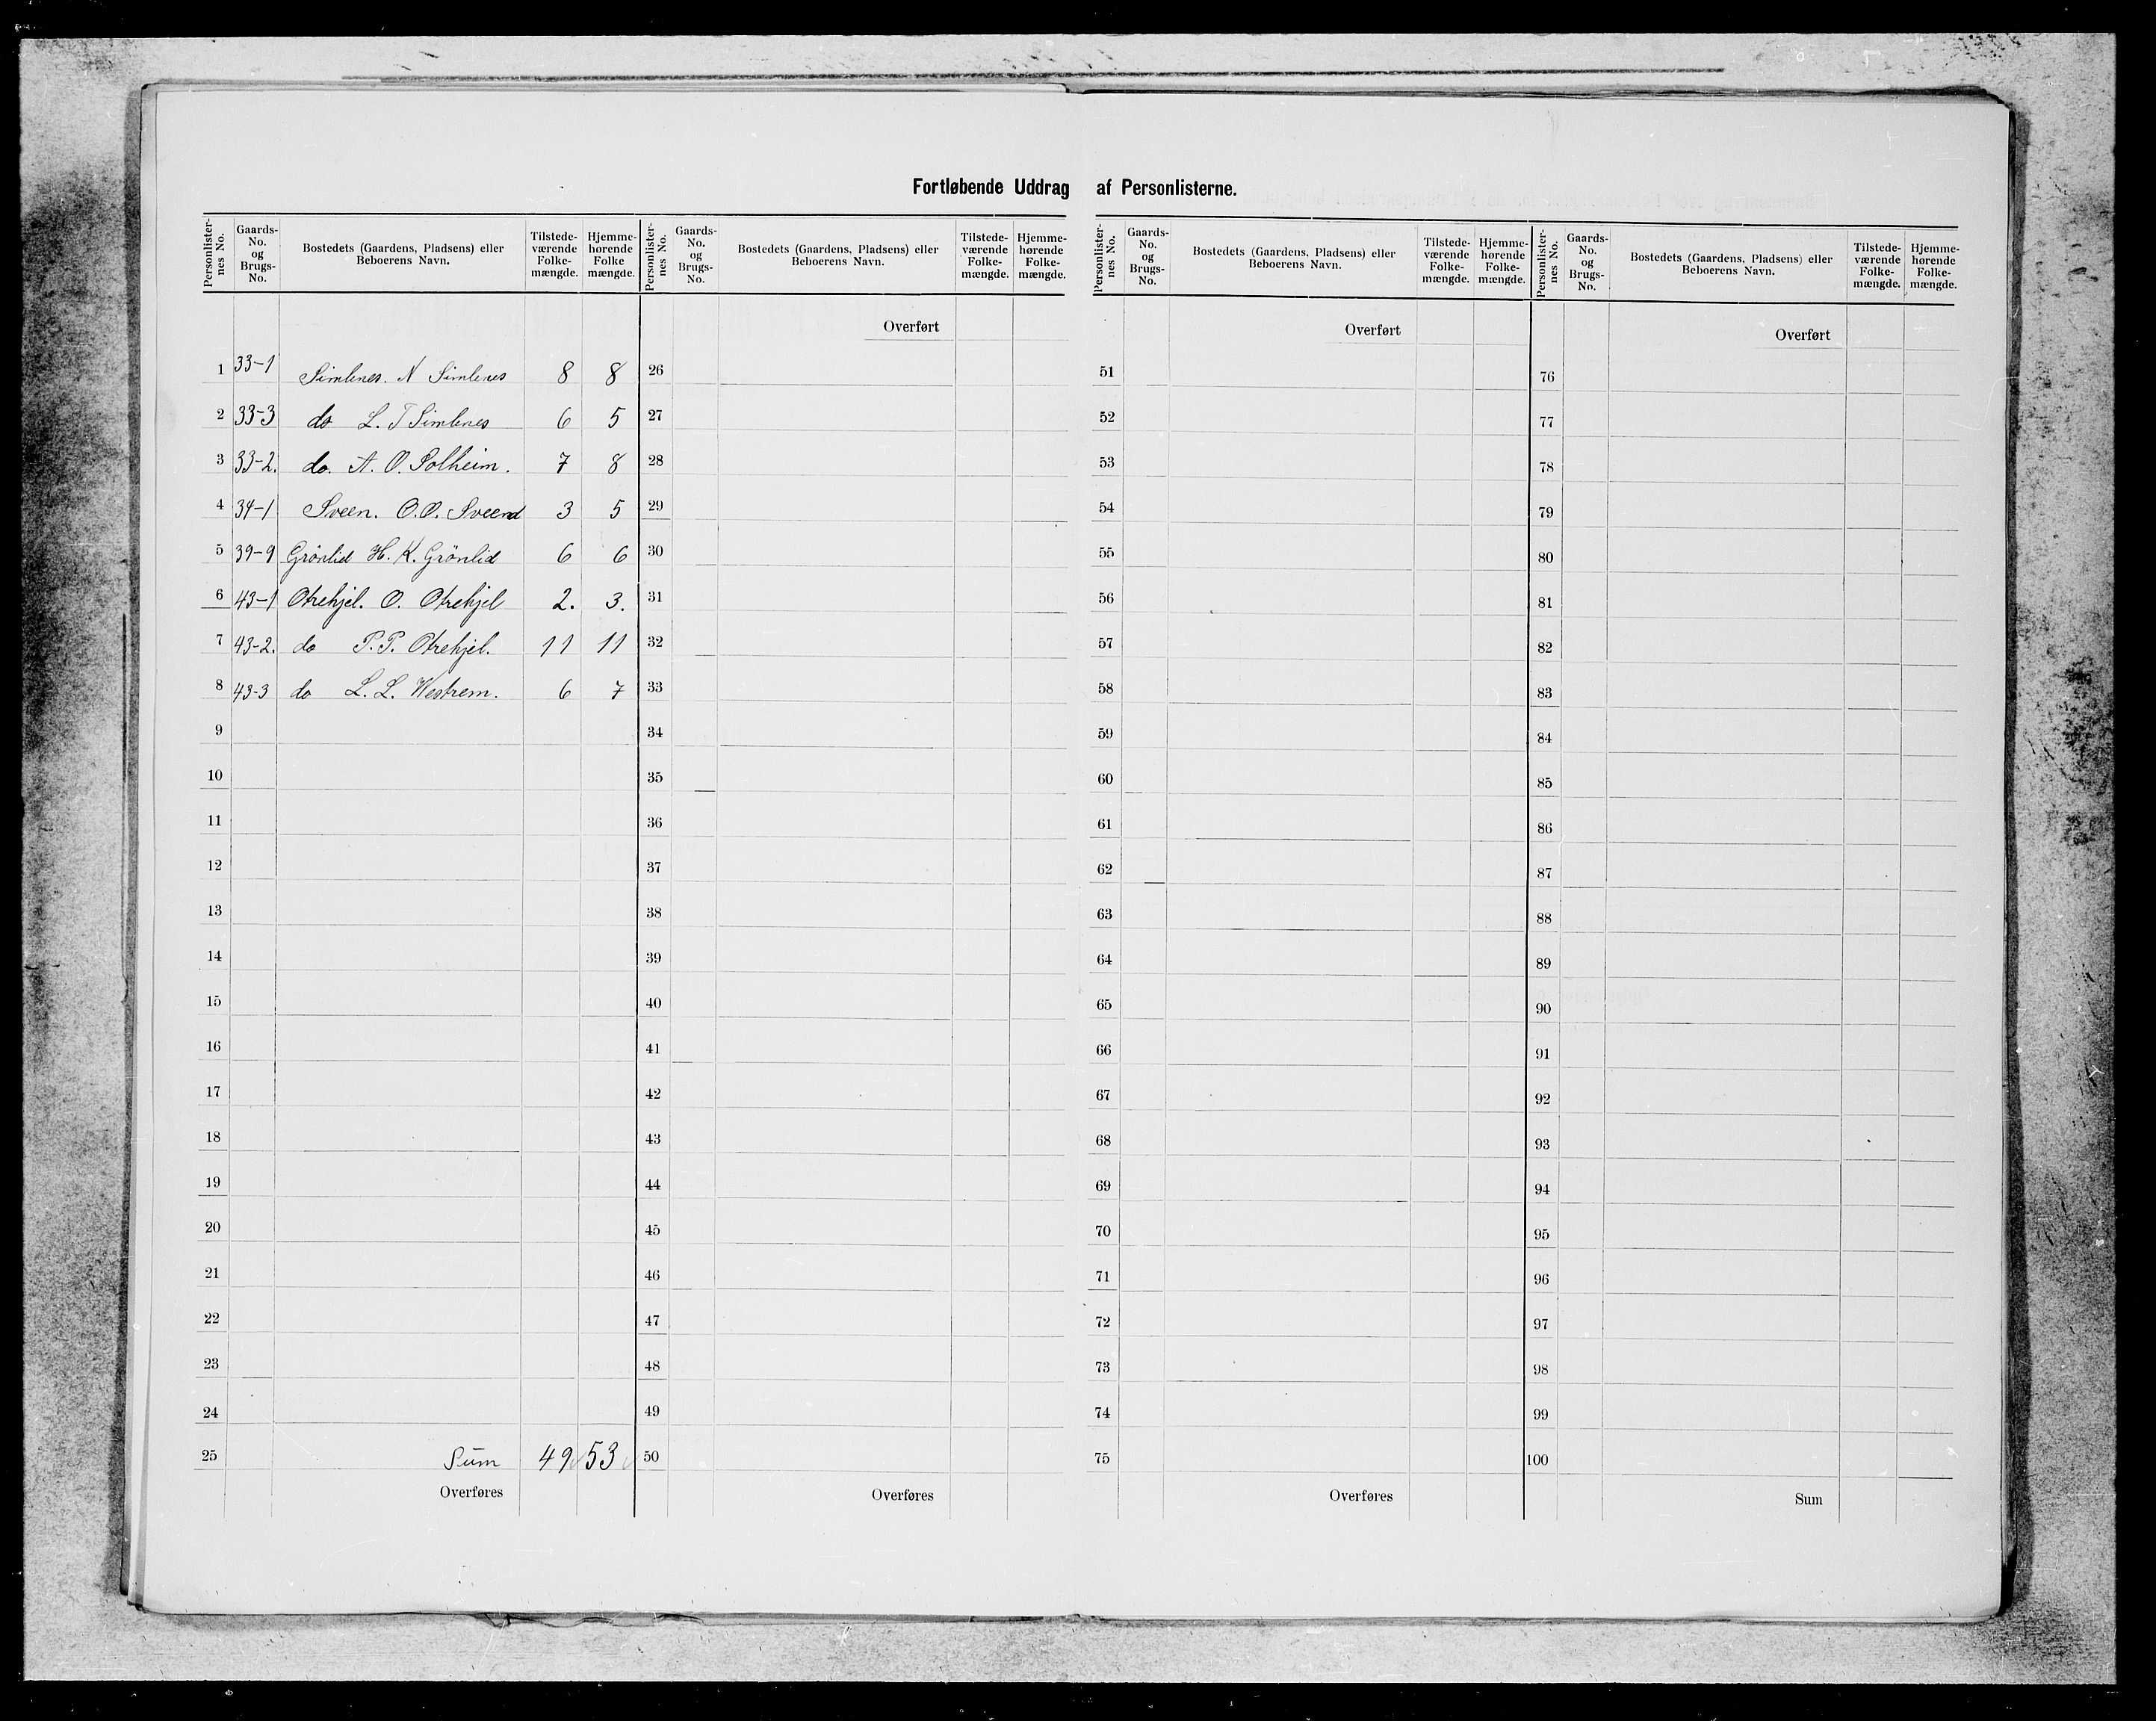 Fortløbende Uddrag af Personlisterne.
Personlister-nes No. Gaards-No. og Brugs-No. Bostedets (Gaardens, Pladsens) eller Beboerens Navn. Tilstede-værende Folke-mængde. Hjemme-hørende Folke mængde. Personlister-nes No. Gaards-No. og Brugs-No. Bostedets (Gaardens, Pladsens) eller Beboerens Navn. Tilstede-værende Folke-mængde. Hjemme-hørende Folke-mængde. Personlister-nes No. Gaards-No. og Brugs-No. Bostedets (Gaardens, Pladsens) eller Beboerens Navn. Tilstede-værende Folke-mængde. Hjemme-hørende Folke-mængde. Personlister-nes No. Gaards-No. og Brugs-No. Bostedets (Gaardens, Pladsens) eller Beboerens Navn. Tilstede-værende Folke-mængde. Hjemme-hørende Folke-mængde.
Overført Overført Overført
1 33-1 Simlenes. N Simlenes 8 8 26 51 76
2 33-3 do L. T Simlenes 6 5 27 52 77
3 33-2. do. A. O. Solheim. 7 8 28 53 78
4 34-1 Sveen. O.O. Sveend 3 5 29 54 79
5 39-9 Grönlid H. K. Grönlid 6 6 30 55 80
6 43-1 Otrehjel. O. Otrehjel 2. 3. 31 56 81
7 43-2. do P.P. Otrehjel. 11 11 32 57 82
8 43-3 do L. L. Westrem. 6 7 33 58 83
9 34 59 84
10 35 60 85
11 36 61 86
12 37 62 87
13 38 63 88
14 39 64 89
15 40 65 90
16 41 66 91
17 42 67 92
18 43 68 93
19 44 69 94
20 45 70 95
21 46 71 96
22 47 72 97
23 48 73 98
24 49 74 99
25 Sum 49 53 50 75 100
Overføres Overføres Overføres Sum